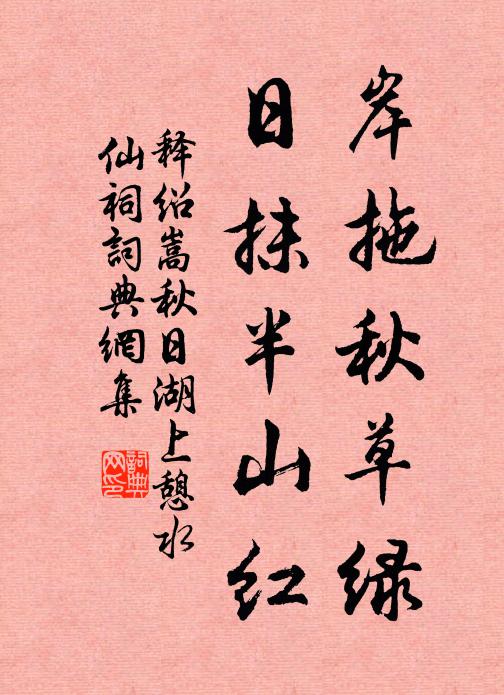 岸拖秋草绿
日抹半山红
释绍嵩秋日湖上憩水
仙祠詞典網集
詞典网印